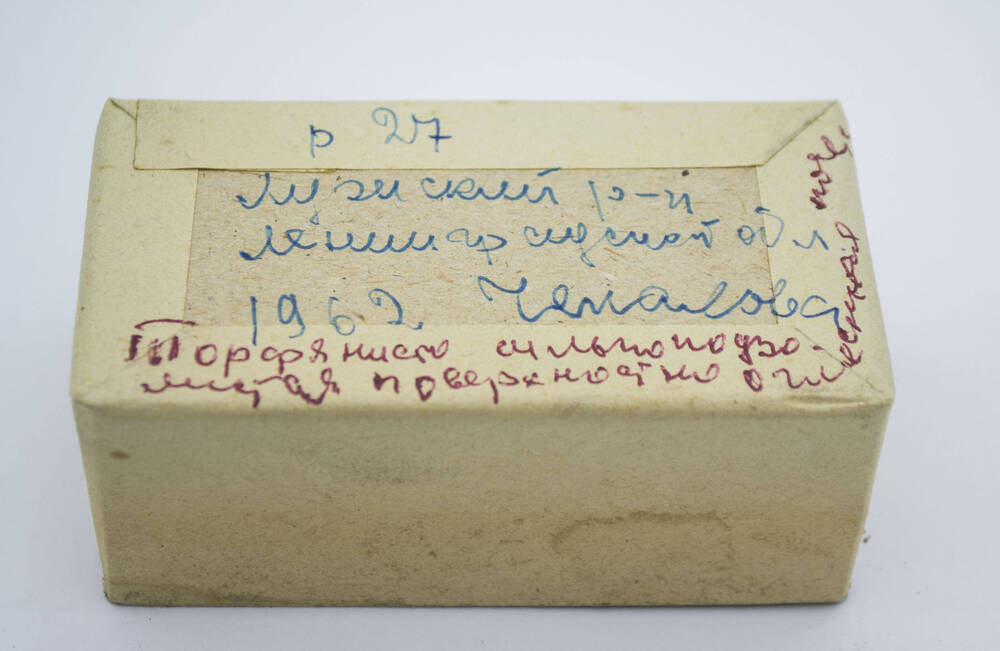 р 27
Лужский р-н
Ленинградской обл
1962 Чепалова
Торфянисто сильноподзо-
листая поверхностно оглеенная почва